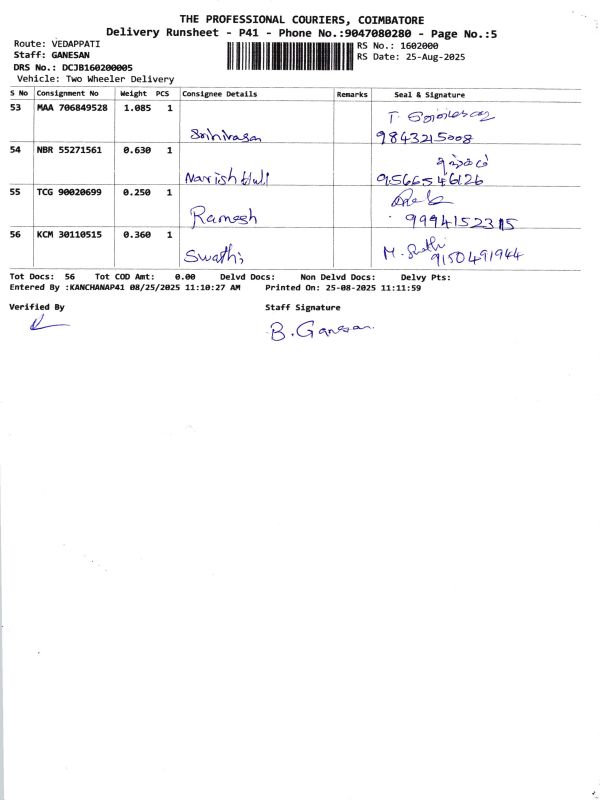 THE PROFESSIONAL COURIERS, COIMBATORE
Delivery Runsheet - P41 - Phone No.:9047080280 - Page No.:5
Route: VEDAPPATI
RS No.: 1602000
Staff: GANESAN
RS Date: 25-Aug-2025
DRS No.: DCJB160200005
Vehicle: Two Wheeler Delivery
S No Consignment No Weight PCS Consignee Details Remarks Seal & Signature
53 MAA 706849528 1.085 1
Srinivasan 9843215008
54 NBR 55271561 0.630 1
9566546126
55 TCG 90020699 0.250 1
Ramesh
56 KCM 30110515 0.360 1
Swathi 9150491944
Tot Docs: 56 Tot COD Amt: 0.00 Delvd Docs: Non Delvd Docs: Delvy Pts:
Entered By :KANCHANAP41 08/25/2025 11:10:27 AM Printed On: 25-08-2025 11:11:59
Verified By Staff Signature
B. Ganesan